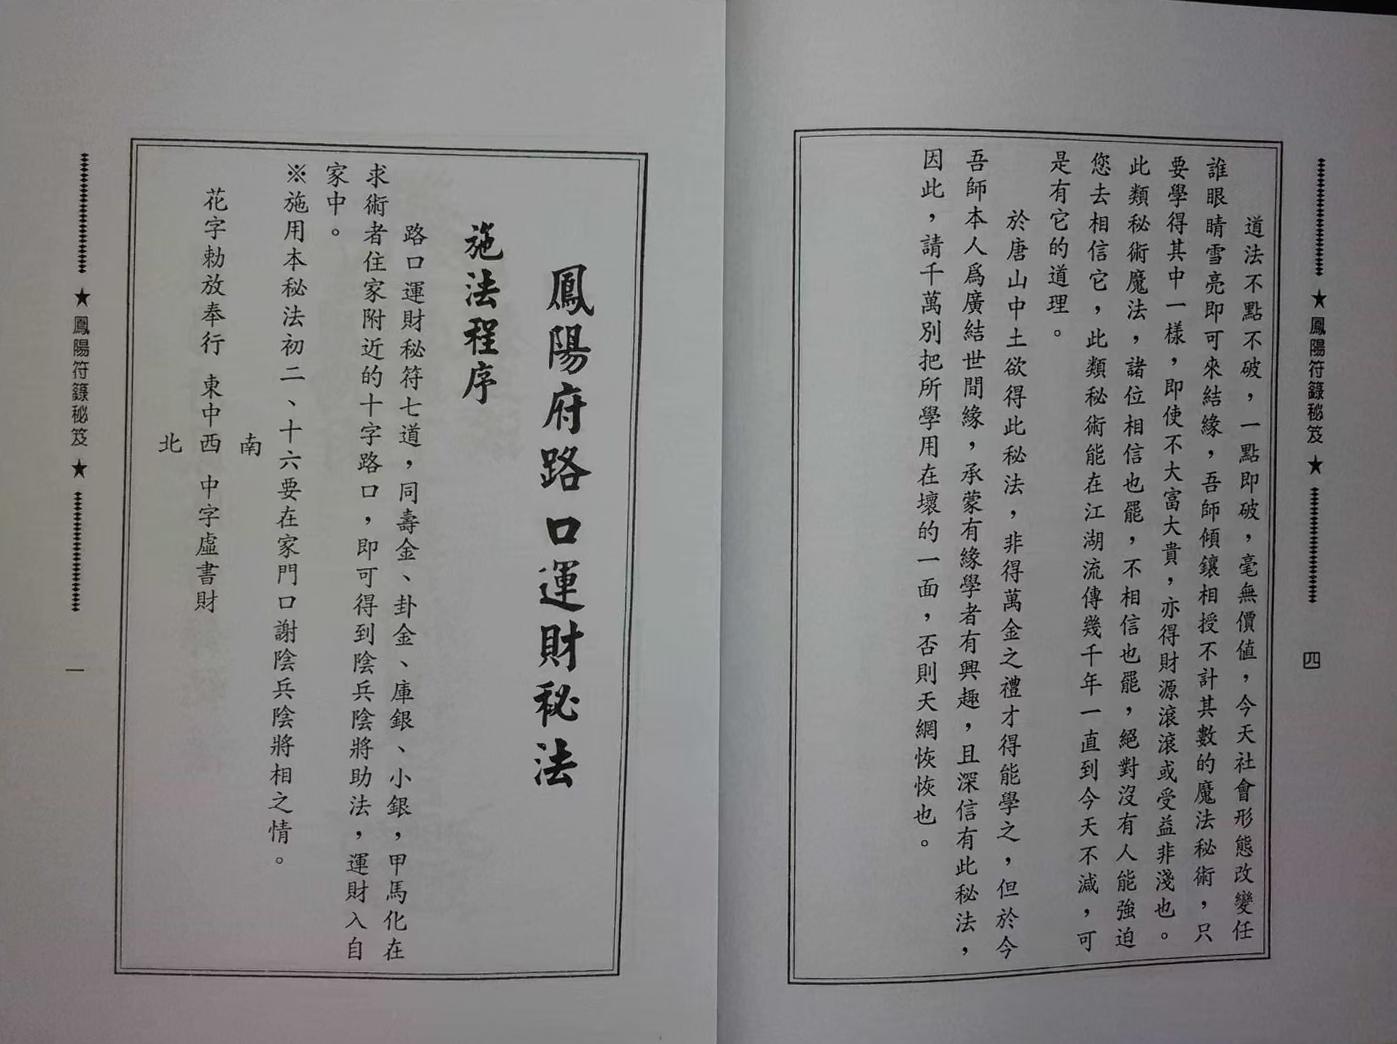 ★鳳陽符籙秘笈★
四
道法不點不破，一點即破，毫無價值，今天社會形態改變任
誰眼睛雪亮即可來結緣，吾師傾鑲相授不計其數的魔法秘術，只
要學得其中一樣，即使不大富大貴，亦得財源滾滾或受益非淺也。
此類秘術魔法，諸位相信也罷，不相信也罷，絕對沒有人能強迫
您去相信它，此類秘術能在江湖流傳幾千年一直到今天不減，可
是有它的道理。
於唐山中土欲得此秘法，非得萬金之禮才得能學之，但於今
吾師本人爲廣結世間緣，承蒙有緣學者有興趣，且深信有此秘法，
因此，請千萬別把所學用在壞的一面，否則天網恢恢也。
鳳陽府路口運財秘法
施法程序
路口運財秘符七道，同壽金、卦金、庫銀、小銀，甲馬化在
求術者住家附近的十字路口，即可得到陰兵陰將助法，運財入自
家中。
※施用本秘法初二、十六要在家門口謝陰兵陰將相之情。
南
花字勅放奉行 東中西 中字虛書財
北
★鳳陽符籙秘笈★
一